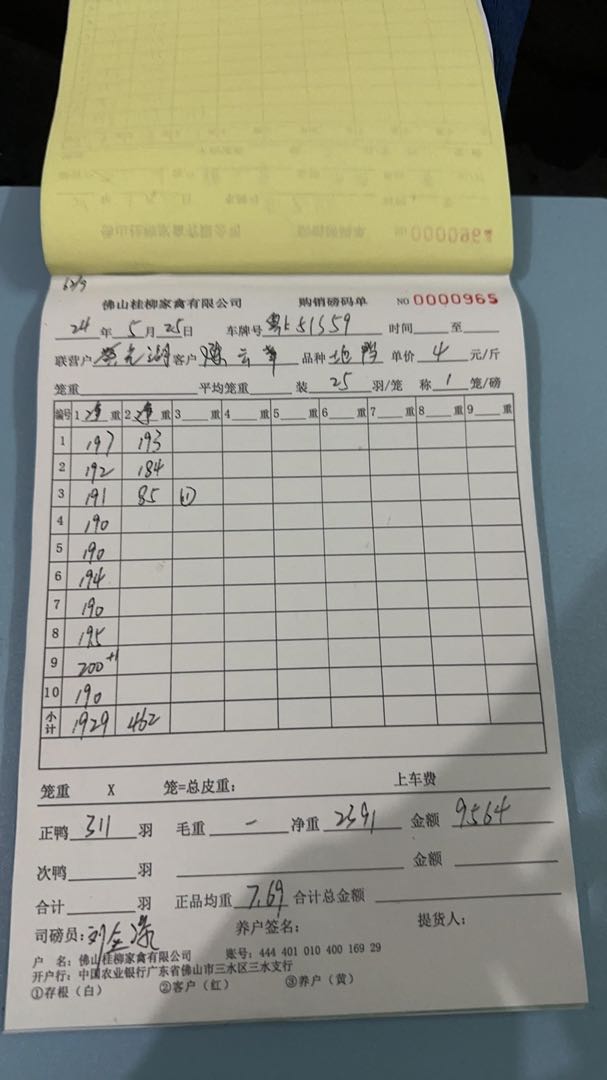 佛山桂柳家禽有限公司 购销磅码单 NO 0000965
24 年 5 月 25 日 车牌号 时间 至
联营户 客户 陈云 品种 单价 4 元/斤
笼重 平均笼重 装 25 羽/笼 称 1 笼/磅
编号 1 净 重 2 净 重 3 重 4 重 5 重 6 重 7 重 8 重 9 重
1 197 193
2 192 184
3 191 85 ⑪
4 190
5 190
6 194
7 190
8 195
9 200+1
10 190
小计 1929 462
笼重 X 笼=总皮重: 上车费
正鸭 311 羽 毛重 — 净重 2391 金额 9564
次鸭 羽 金额
合计 羽 正品均重 7.69 合计总金额
司磅员: 养户签名: 提货人:
户 名: 佛山桂柳家禽有限公司 账号: 444 401 010 400 169 29
开户行: 中国农业银行广东省佛山市三水区三水支行
①存根(白) ②客户(红) ③养户(黄)